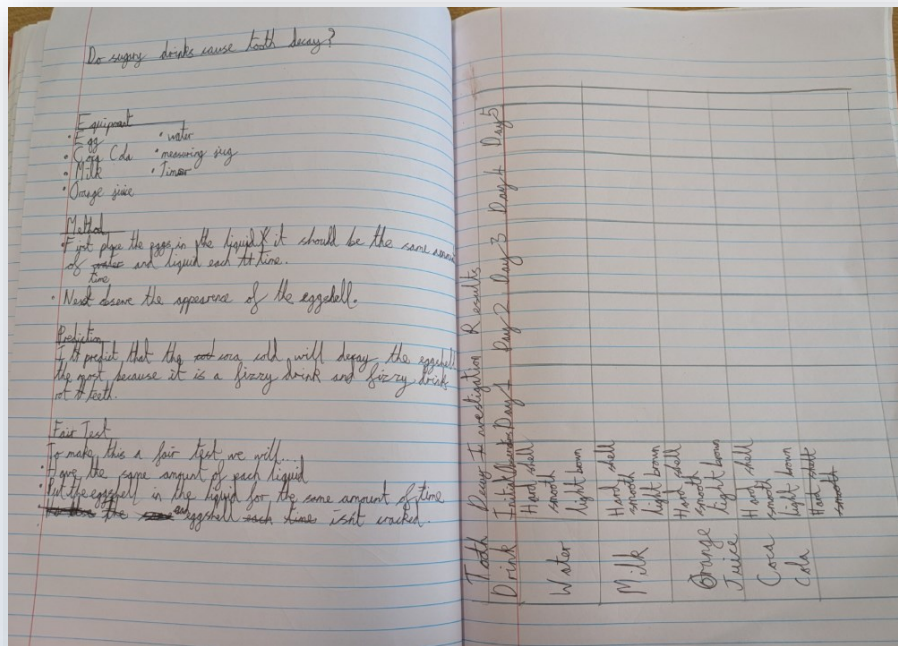 Do sugary drinks cause tooth decay?
Equipment
• Egg
• water
• Coca Cola
• measuring jug
• Milk
• Timer
• Orange juice
Method
• First place the eggs in the liquid it should be the same amount
of time and liquid each time.
• Next observe the appearence of the eggshell.
Prediction
I predict that the coca cold will decay the eggshell
the most because it is a fizzy drink and fizzy drinks
rot teeth.
Fair Test
To make this a fair test we will...
• Have the same amount of each liquid
• Put the eggshell in the liquid for the same amount of time
eggshell isn't cracked.
Tooth Decay Investigation Results
Drink
Day 1
Day 2
Day 3
Day 4
Day 5
Water
Hard shell
smooth
light brown
Milk
Hard shell
smooth
light brown
Orange
Juice
Hard shell
smooth
light brown
Coca
Cola
Hard shell
smooth
light brown
Hard shell
smooth